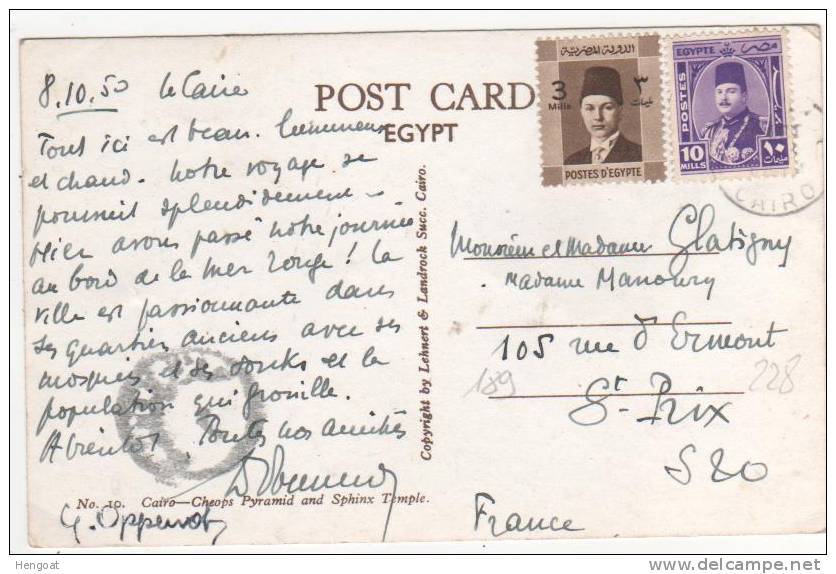 8.10.50 le Caire
Tout ici est beau. lumineux
et chaud. Notre voyage se
poursuit splendidement -
Hier avons passé notre journée
au bord de la Mer Rouge! La
ville est passionnante dans
ses quartiers anciens avec ses
mosquées et ses souks et la
population qui grouille.
A bientôt. Toutes nos amitiés
No. 10. Cairo—Cheops Pyramid and Sphinx Temple.
POST CARD
EGYPT
Copyright by Lehnert & Landrock Succ. Cairo.
الدولة المصرية
3 ٣
Mills مليمات
POSTES D'EGYPTE
EGYPTE مصر
POSTES
10 ١٠
MILLS مليمات
CAIRO
Monsieur et Madame Glatigny
Madame Manoury
105 rue d'Ermont
St-Prix
S & O
France
189
228
Hengoat
www.delcampe.net